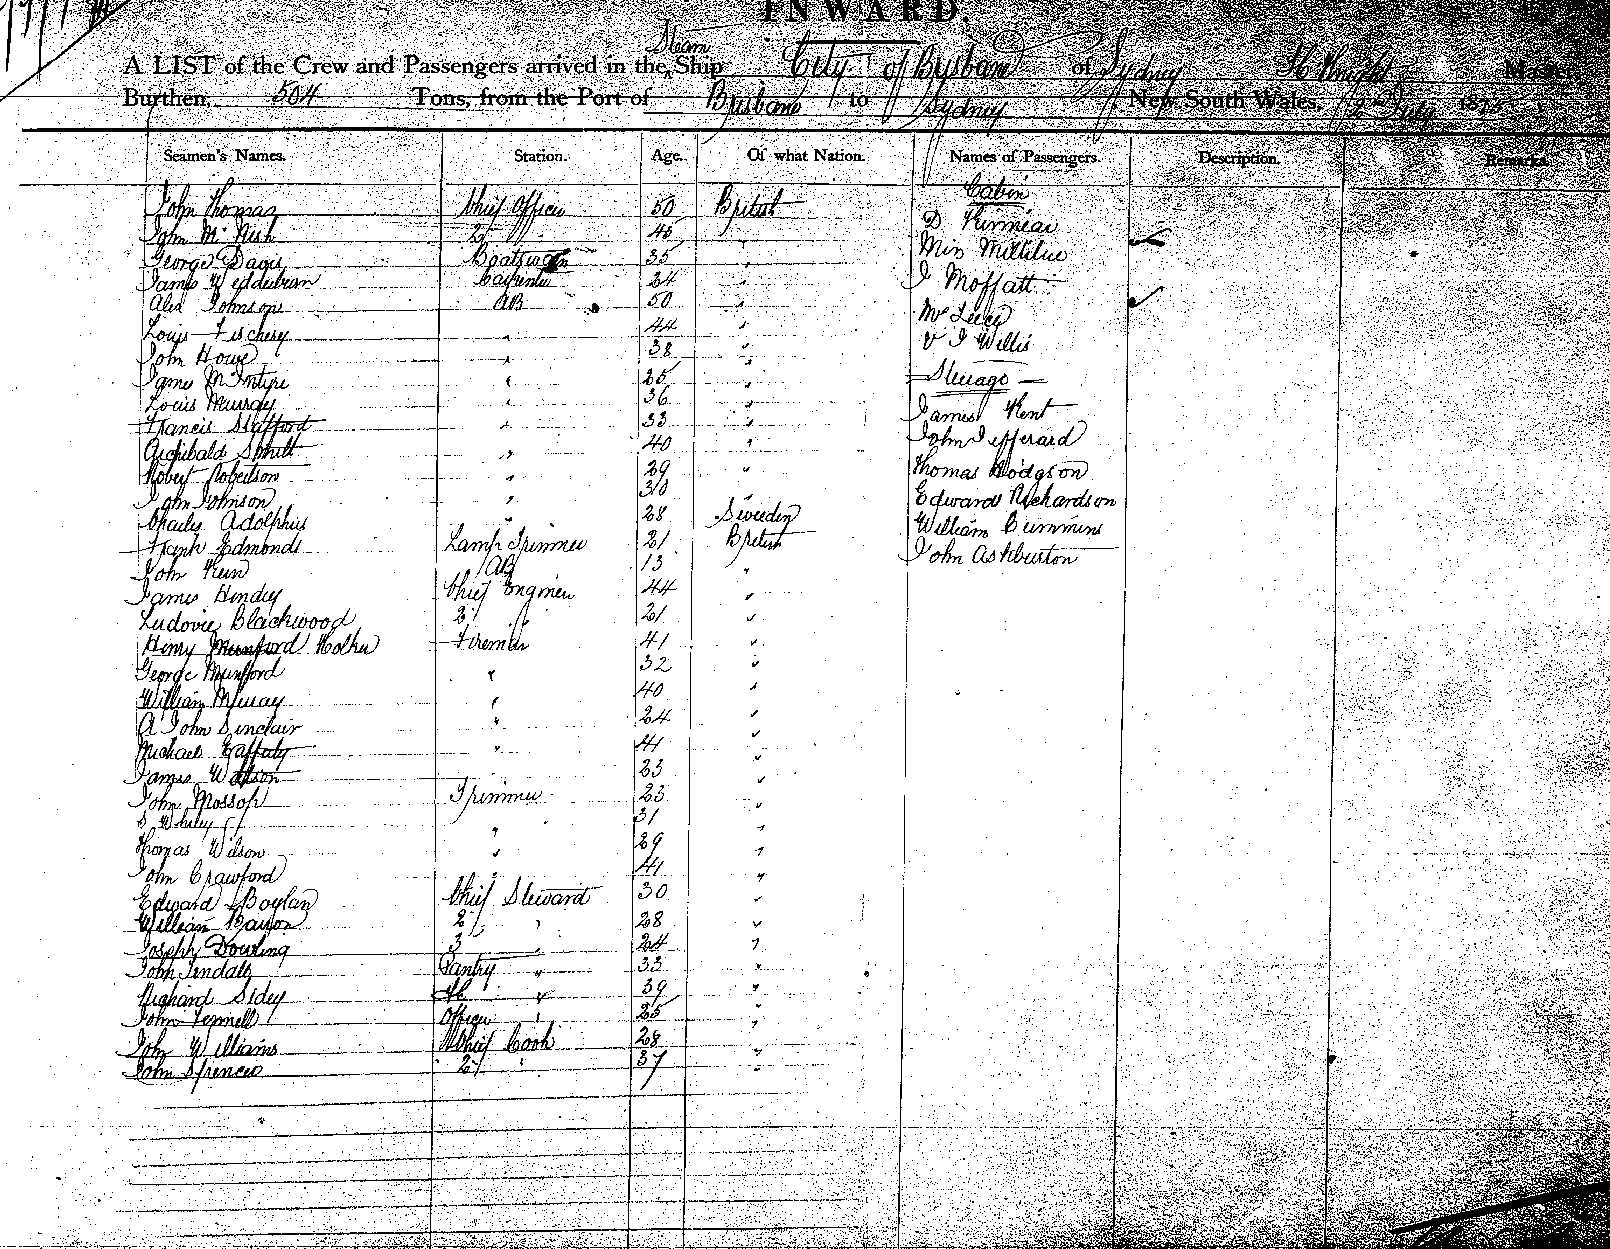 INWARD.
Steam
A LIST of the Crew and Passengers arrived in the Ship City of Brisbane of Sydney H Knight Master,
Burthen, 504 Tons, from the Port of Brisbane to Sydney New South Wales, 2nd July 187
Seamen's Names. Station. Age. Of what Nation. Names of Passengers. Description. Remarks.
Cabin
John Thomas Chief Officer 50 British
John Mc 2 " 46 " D
George Davis Boatswain 35 " Miss
James Wedderburn Carpenter 24 " J Moffatt
Alex Johnson AB 50 "
Louis Fischery " 44 " Mr
John Howe " 38 " V J Willis
James McIntyre " 25 " Steerage
Louis Murray " 36 "
Francis Stafford " 33 " James Kent
Archibald " 40 " John
Robert Robertson " 29 " Thomas Hodgson
John Johnson " 30 " Edward Richardson
Charles Adolphus " 28 Sweeden William Cummins
Frank Edmonds Lamp Trimmer 21 British John Ashburton
John AB 13 "
James Hendry Chief Engineer 44 "
Ludovic Blackwood 2 " 21 "
Henry Munford Fireman 41 "
George Munford " 32 "
William Murray " 40 "
A John Sinclair " 24 "
Michael Gaffaly " 41 "
James Watson 23 "
John Mossop Trimmer 23 "
S 31 "
Thomas Wilson " 29 "
John Crawford " 41 "
Edward Boylan Chief Steward 30 "
William Baison 2 " 28 "
Joseph Dowling 3 " 24 "
John Tindale Pantry " 33 "
Richard Sidey " 39 "
John Fennell Officer " 25 "
John Williams Chief Cook 28 "
John Spencer 2 " 37 "